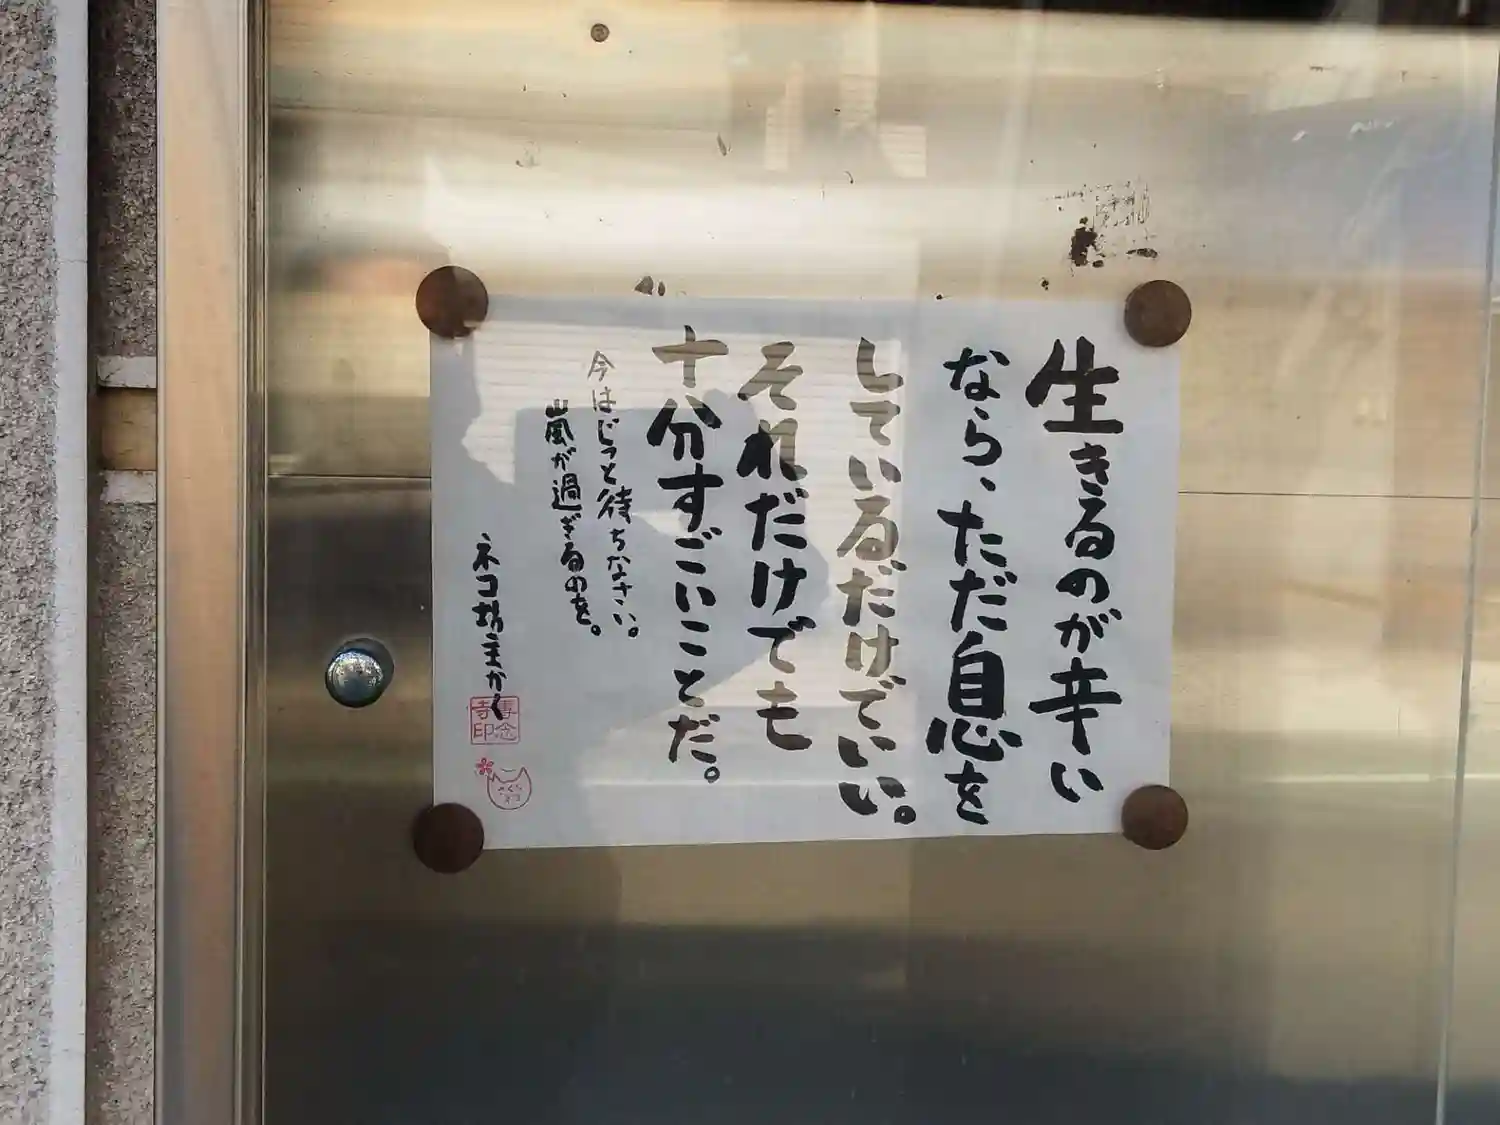 生きるのが辛い
なら、ただ息を
しているだけでいい。
それだけでも
十分すごいことだ。
今はじっと待ちなさい。
嵐が過ぎるのを。
ネコ坊主かく
専念
寺印
さくら
ネコ